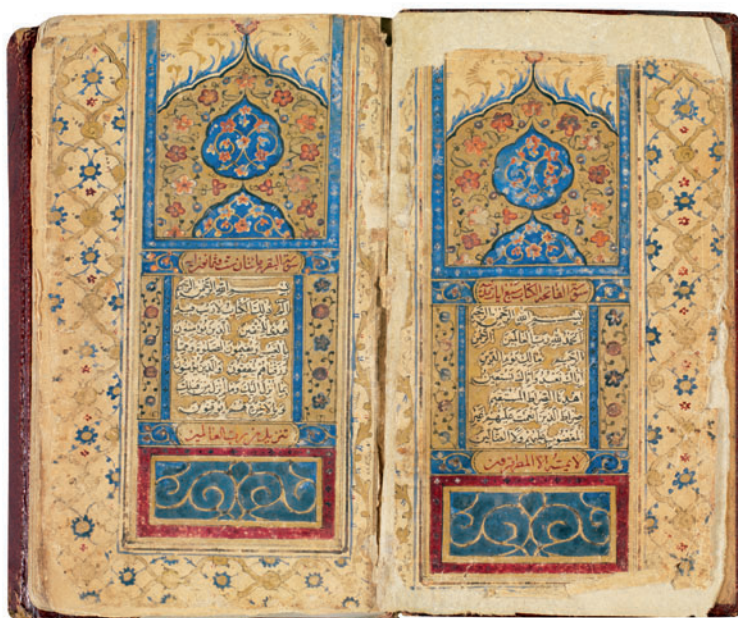 سورة الفاتحة الكتاب سبع ايات
بسم الله الرحمن الرحيم
الحمد لله رب العالمين الرحمن
الرحيم مالك يوم الدين
اياك نعبد واياك نستعين
اهدنا الصراط المستقيم
صراط الذين انعمت عليهم غير
المغضوب عليهم ولا الضالين
لا يمسه الا المطهرون
سورة البقرة مائتان ست وثمانون اية
بسم الله الرحمن الرحيم
الم ذلك الكتاب لا ريب فيه
هدى للمتقين الذين يؤمنون
بالغيب ويقيمون الصلوة ومما
رزقناهم ينفقون والذين يؤمنون
بما انزل اليك وما انزل من قبلك
وبالاخرة هم يوقنون
تنزيل من رب العالمين